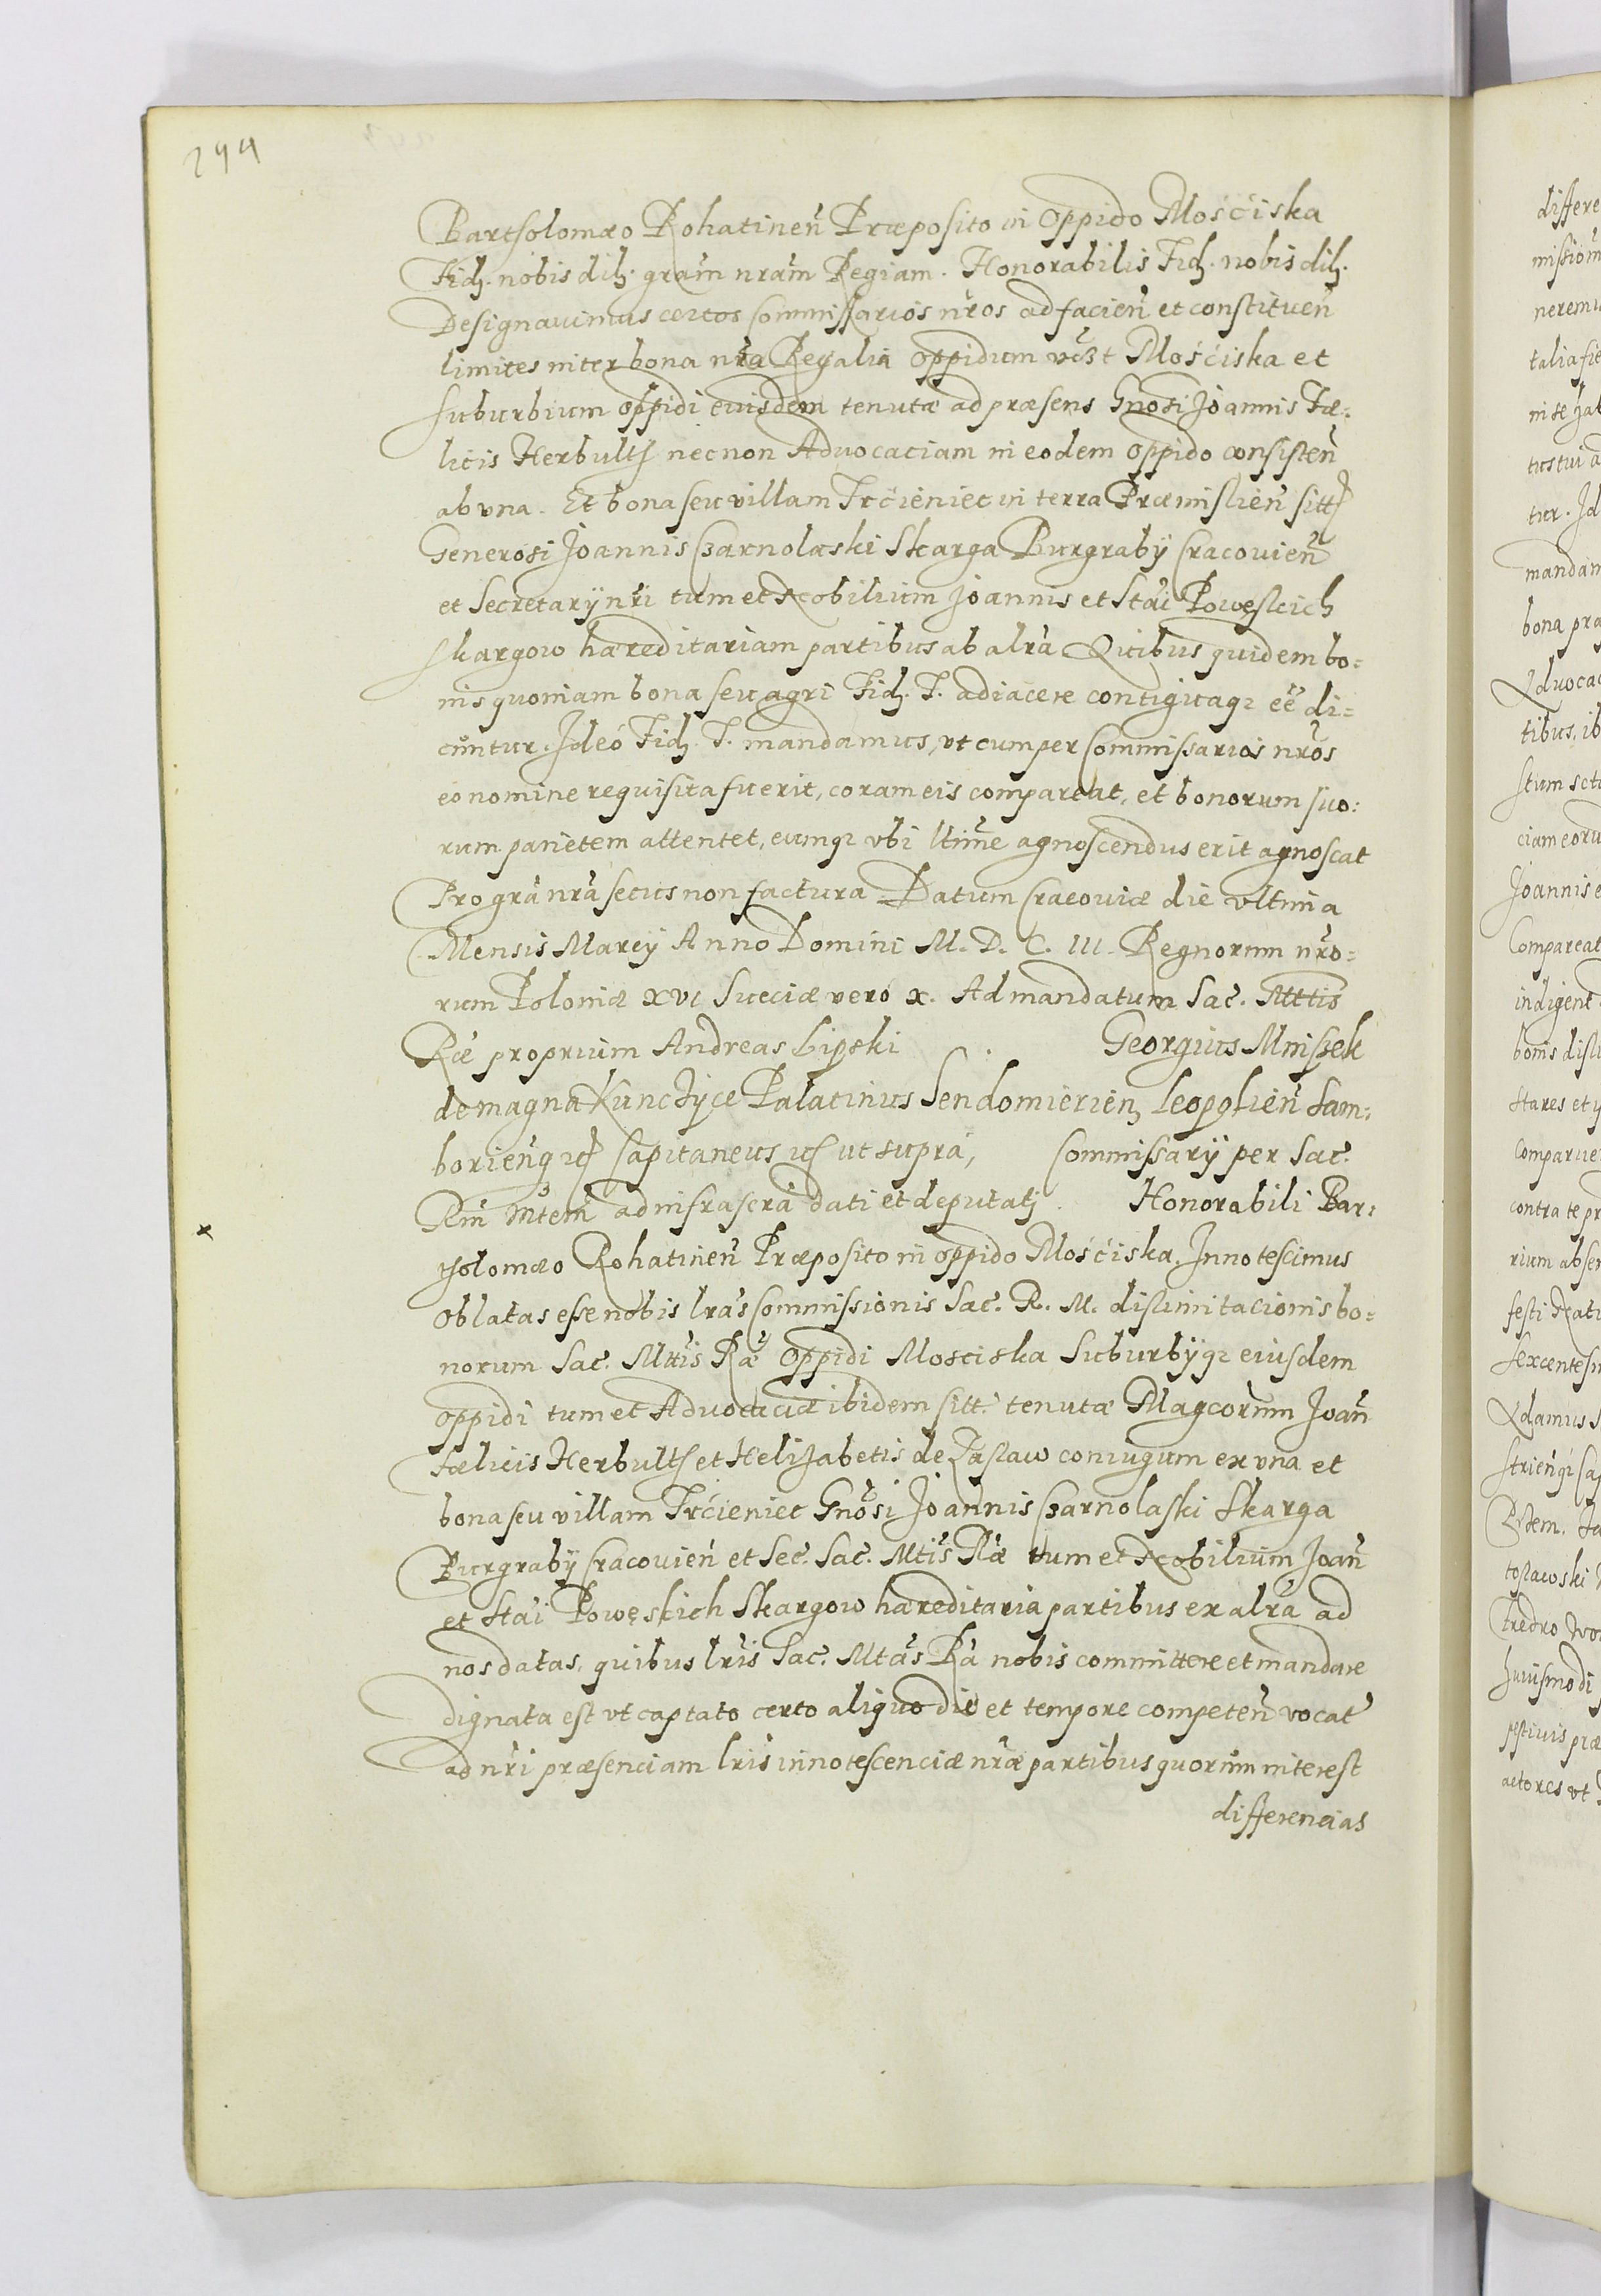 244
Bartholomæo Rohatinen̄ Præposito in oppido Mościska
Fidł. nobis dił. gram̄ nram̄ Regiam. Honorabilis Fidł. nobis dił.
Designauimus certos Commissarios nr̄os ad facien̄ et constituen̄
limites inter bona nr̄a Regalia oppidum vcz̄t Mościska et
suburbium oppidi eiusdem tenutæ ad præsens Gnōsi Joannis Fæ=
licis Herbultḣ necnon Aduocaciam in eodem oppido consisten̄
ab vna. Et bona seu villam Trćieniec in terra Præmislien̄ sitt
Generosi Joannis Czarnolaski Skarga Burgrabÿ Cracouien̄
et Secretarÿ nr̄i tum et Nobilium Joannis et Stāi Powęskich
Skargow hæreditariam partibus ab alr̄a Quibus quidem bo=
nis quoniam bona seu agri Fidł. T. adiacere contiguaq₂ eē di=
cuntur. Ideó Fidł. T. mandamus, vt cum per Commissarios nr̄os
eo nomine requisita fuerit, coram eis compareat, et bonorum suo=
rum parietem attentet, eumq₂ vbi ltim̄e agnoscendus erit agnoscat
Pro grā nrā secus non factura Datum Cracouiæ die vltima
Mensis Marcÿ Anno Domini M. D. C. III. Regnorum nr̄o=
rum Poloniæ XVI Sueciæ vero X. Ad mandatum Sac. Mttis
Rǣ proprium Andreas Lipski Georgius Mniszek
de magna Kunczÿce Palatinus Sendomierien̄ Leopolien̄ Sam=
borien̄q₂ Capitaneus ut supra, Commissarÿ per Sac.
Rm̄ Mtem̄ ad infrascrā dati et deputatj. Honorabili Bar=
tholomæo Rohatinen̄ Præposito in oppido Mościska. Innotescimus
oblatas esse nobis lrās Commissionis Sac. R. M. dislimitacionis bo=
norum Sac. Mttis Rǣ oppidi Mosciska Suburbÿq₂ eiusdem
oppidi tum et Aduocaciæ ibidem sitt. tenutæ Magcorūm Joan̄
Fælicis Herbultḣ et Helizabetis de Zaslaw coniugum ex vna et
bona seu villam Trćieniec Gnōsi Joannis Czarnolaski Skarga
Burgrabÿ Cracouien̄ et Sec. Sac. Mtis Rǣ tum et Nobilium Joan̄
et Stāi Powęskich Skargow hæreditaria partibus ex alrā ad
nos datas, quibus lrīs Sac. Mtās Rā nobis committere et mandare
dignata est vt captato certo aliquo die et tempore competen̄ vocat̄
ad nr̄i præsenciam lrīs innotescenciæ nr̄æ partibus quorum interest
differencias
differe
missiom
neremu
talia fie
in se
tur. Id
mandam
bona pra
Aduocac
tibus, ib
ciam eoru
Joannis e
Compareat
indigent
bonis disli
stares et
comparue
contra te pr
rium abse
festi Nati
sexcentesi
Striengi Ca
toslawski
Fredro
huiusmodi
actores vt